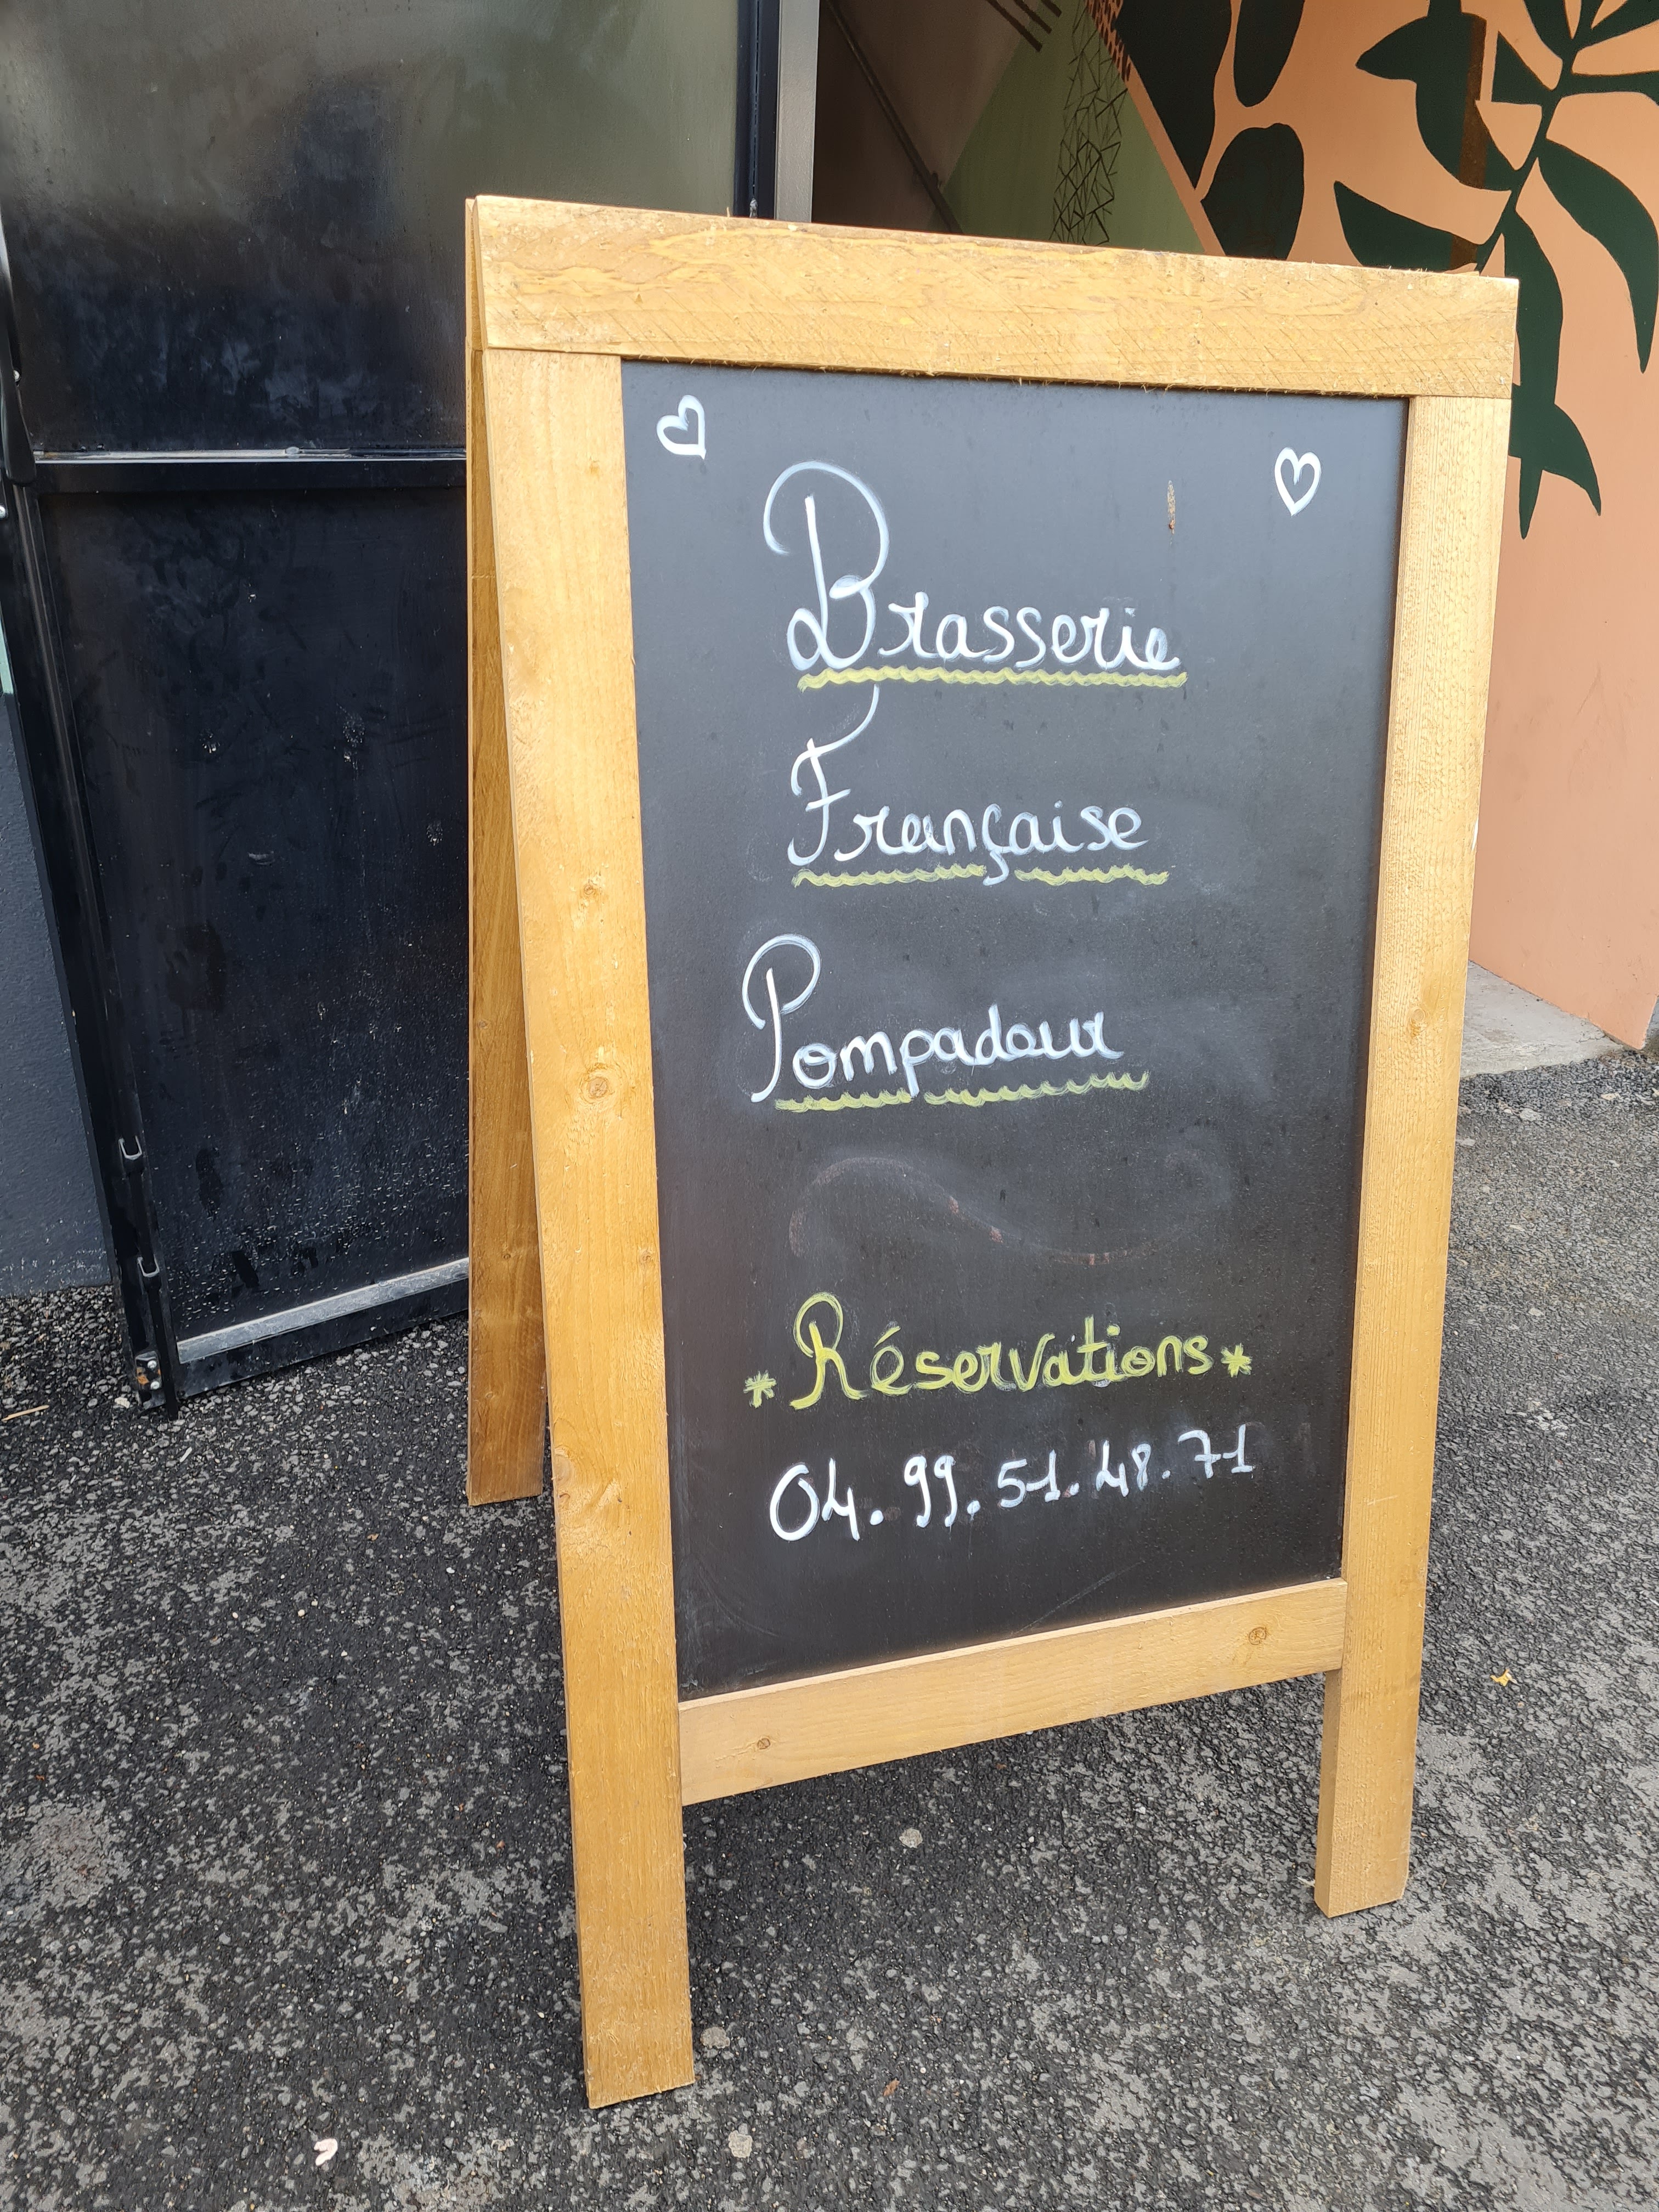 Brasserie
Française
Pompadour
*Réservations*
04.99.51.48.71